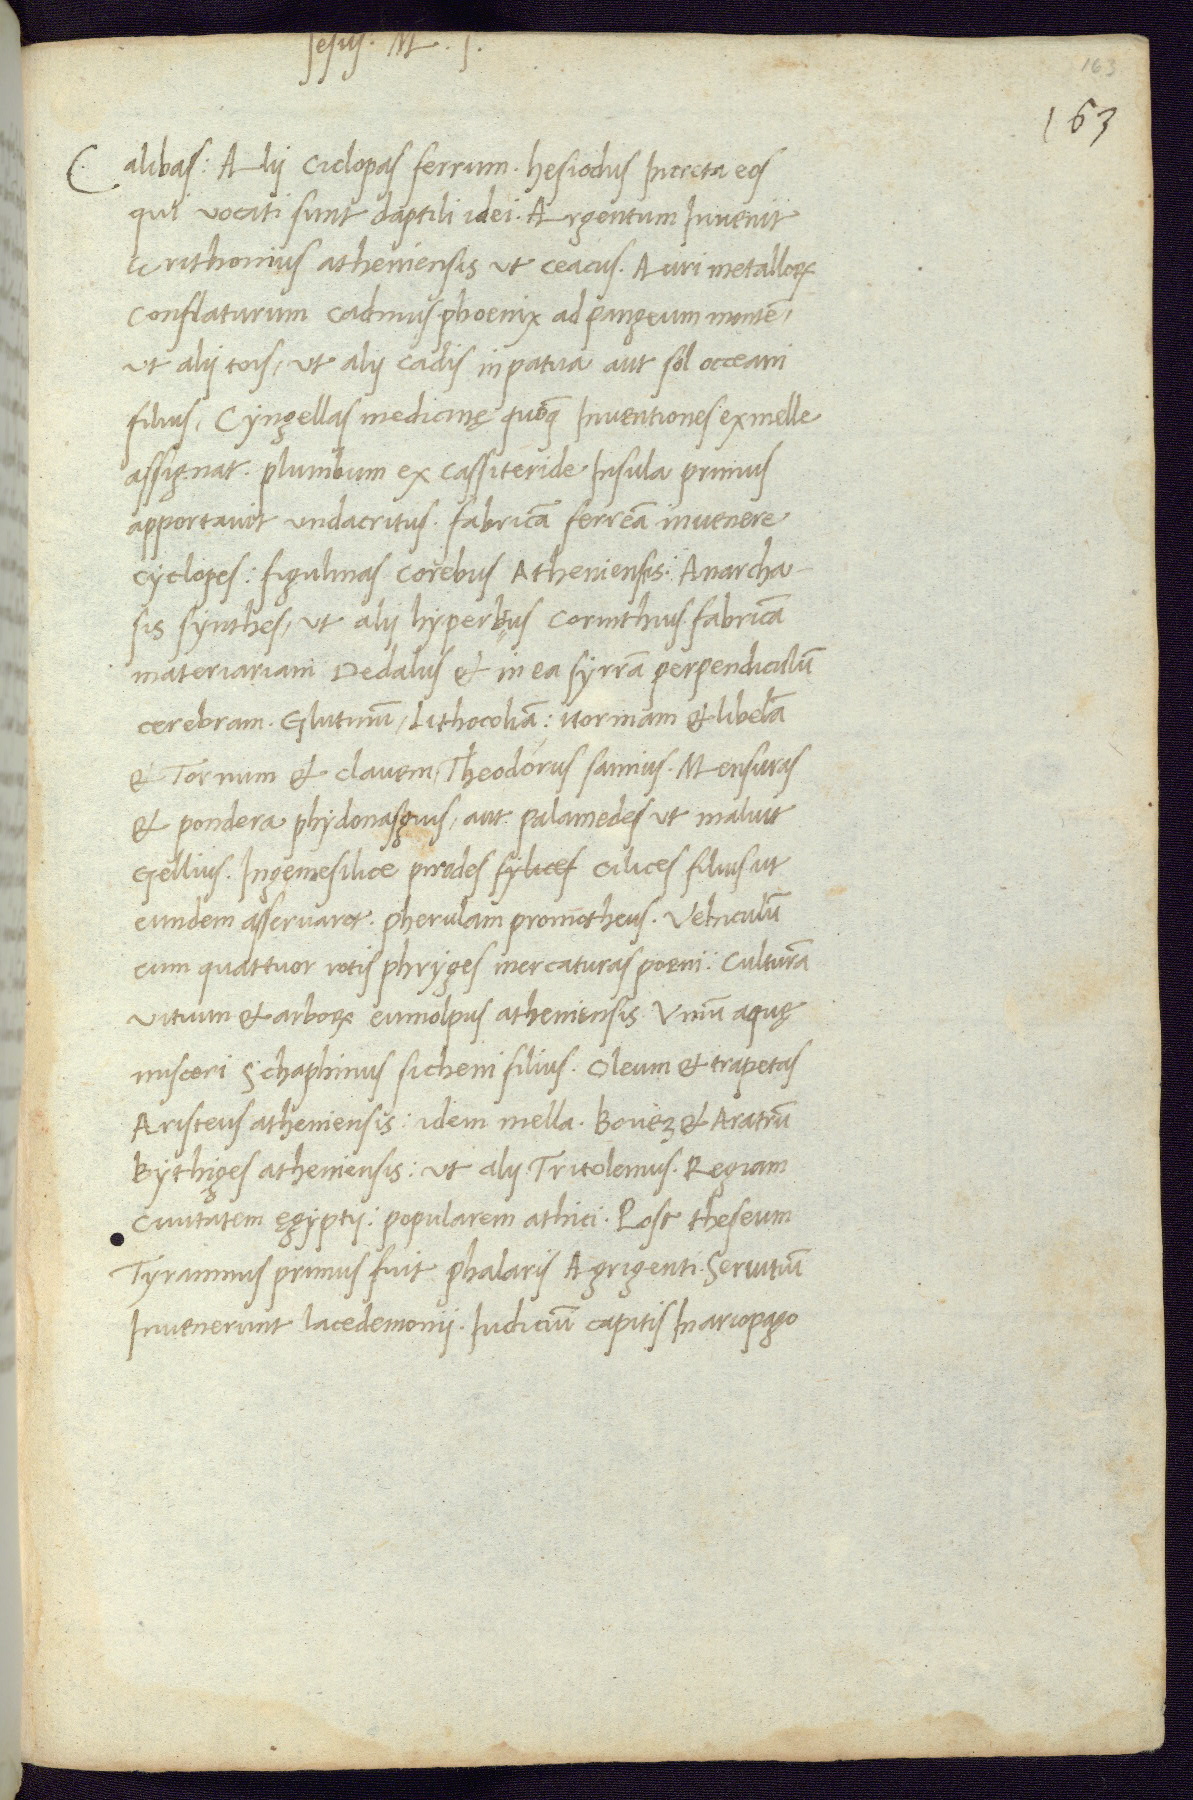 Jesus. M. J.
163
163
Calibas: Alii Ciclopas ferrum. hesiodus In creta eos
qui vocati sunt daptili idei. Argentum Inuenit
Erithonius atheniensis ut ceacus. Auri metallorꝝ
Conflaturum Cadmus phoenix ad pangeum montē,
ut alij tois, ut alij Cadis in patua aut sol occeani
filius, Cyngellas medicinę quoqȝ Inuentiones ex melle
assignat. plumbum ex Cassiteride Insula primus
apportauit undacritus. fabricā ferreā inuenere
cyclopes: figulinas Corebus Atheniensis: Anarcha-
sis synthes, ut alij hyperbius Corinthius. fabricā
materiariam Dedalus & in ea syrrā perpendiculū
cerebram. Glutinū, Lithocoliā: normam & libelā
& Tornum & clauem, Theodorus samius. Mensuras
& pondera phydonasguis, aut Palamedes ut maluit
Gellius. Ingemesilice pirodes sylices cilices filius ut
eundem asseruaret. pherulam prometheus. Vehiculū
cum quattuor rotis phryges mercaturas poeni: Culturā
vitium & arborꝝ eumolpus atheniensis. Vinū aquę
misceri Schaphinus sicheni filius. Oleum & trapetas
Aristeus atheniensis: idem mella. Boueȝ & Aratrū
Bythiges atheniensis: ut alij Tritolemus. Regiam
Ciuitatem ęgyptij: popularem athici. Post theseum
Tyrannus primus fuit phalaris Agrigenti. Seruitiū
Inuenerunt lacedemonij. Iudiciū capitis In ariopago